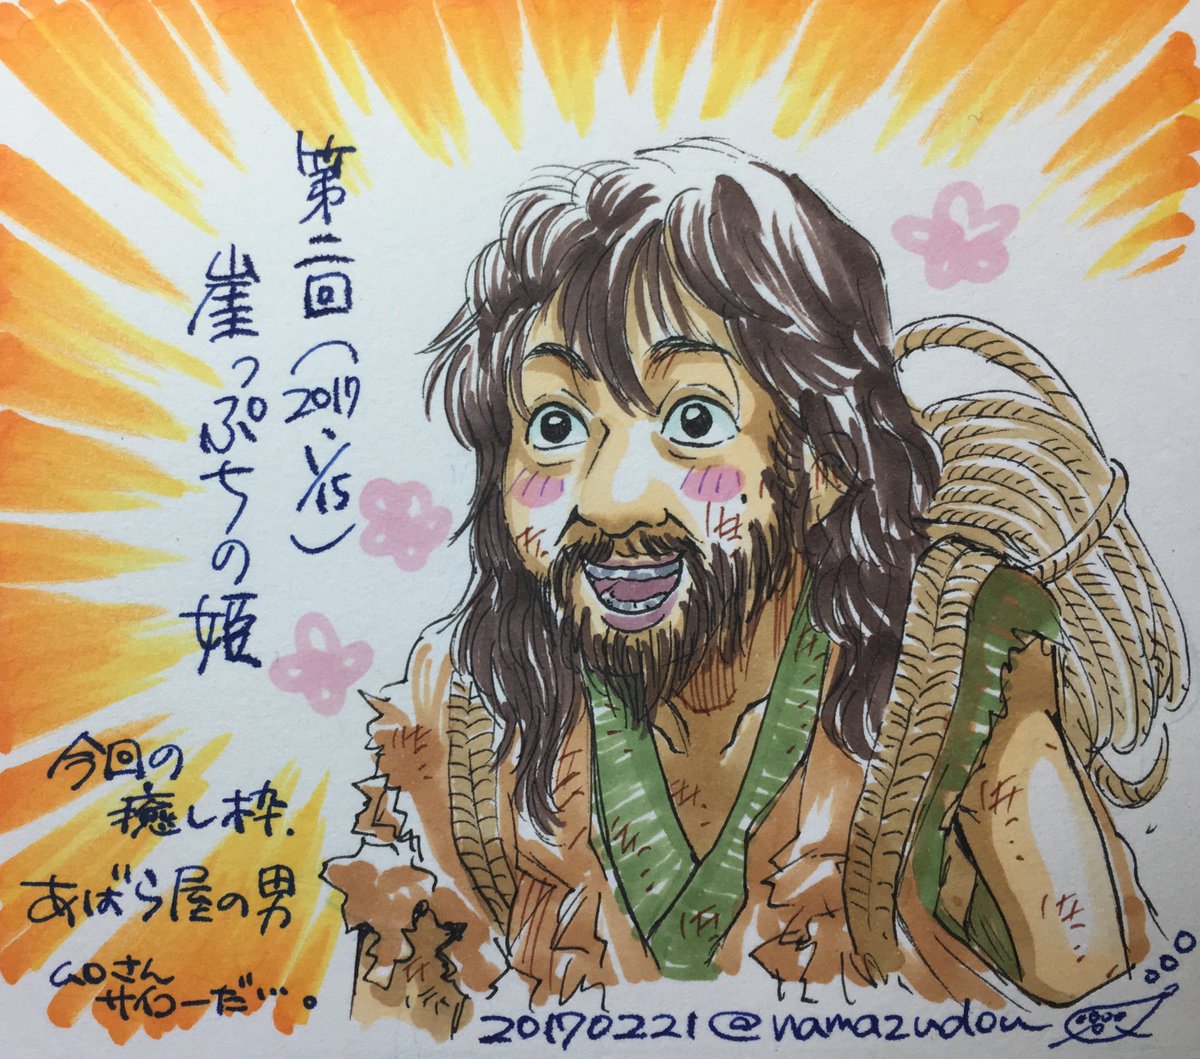 第二回(2017、1/15)
崖っぷちの姫
今回の
癒し枠.
あばら屋の男
ムロさん
サイコーだ…。
20170221@namazudou